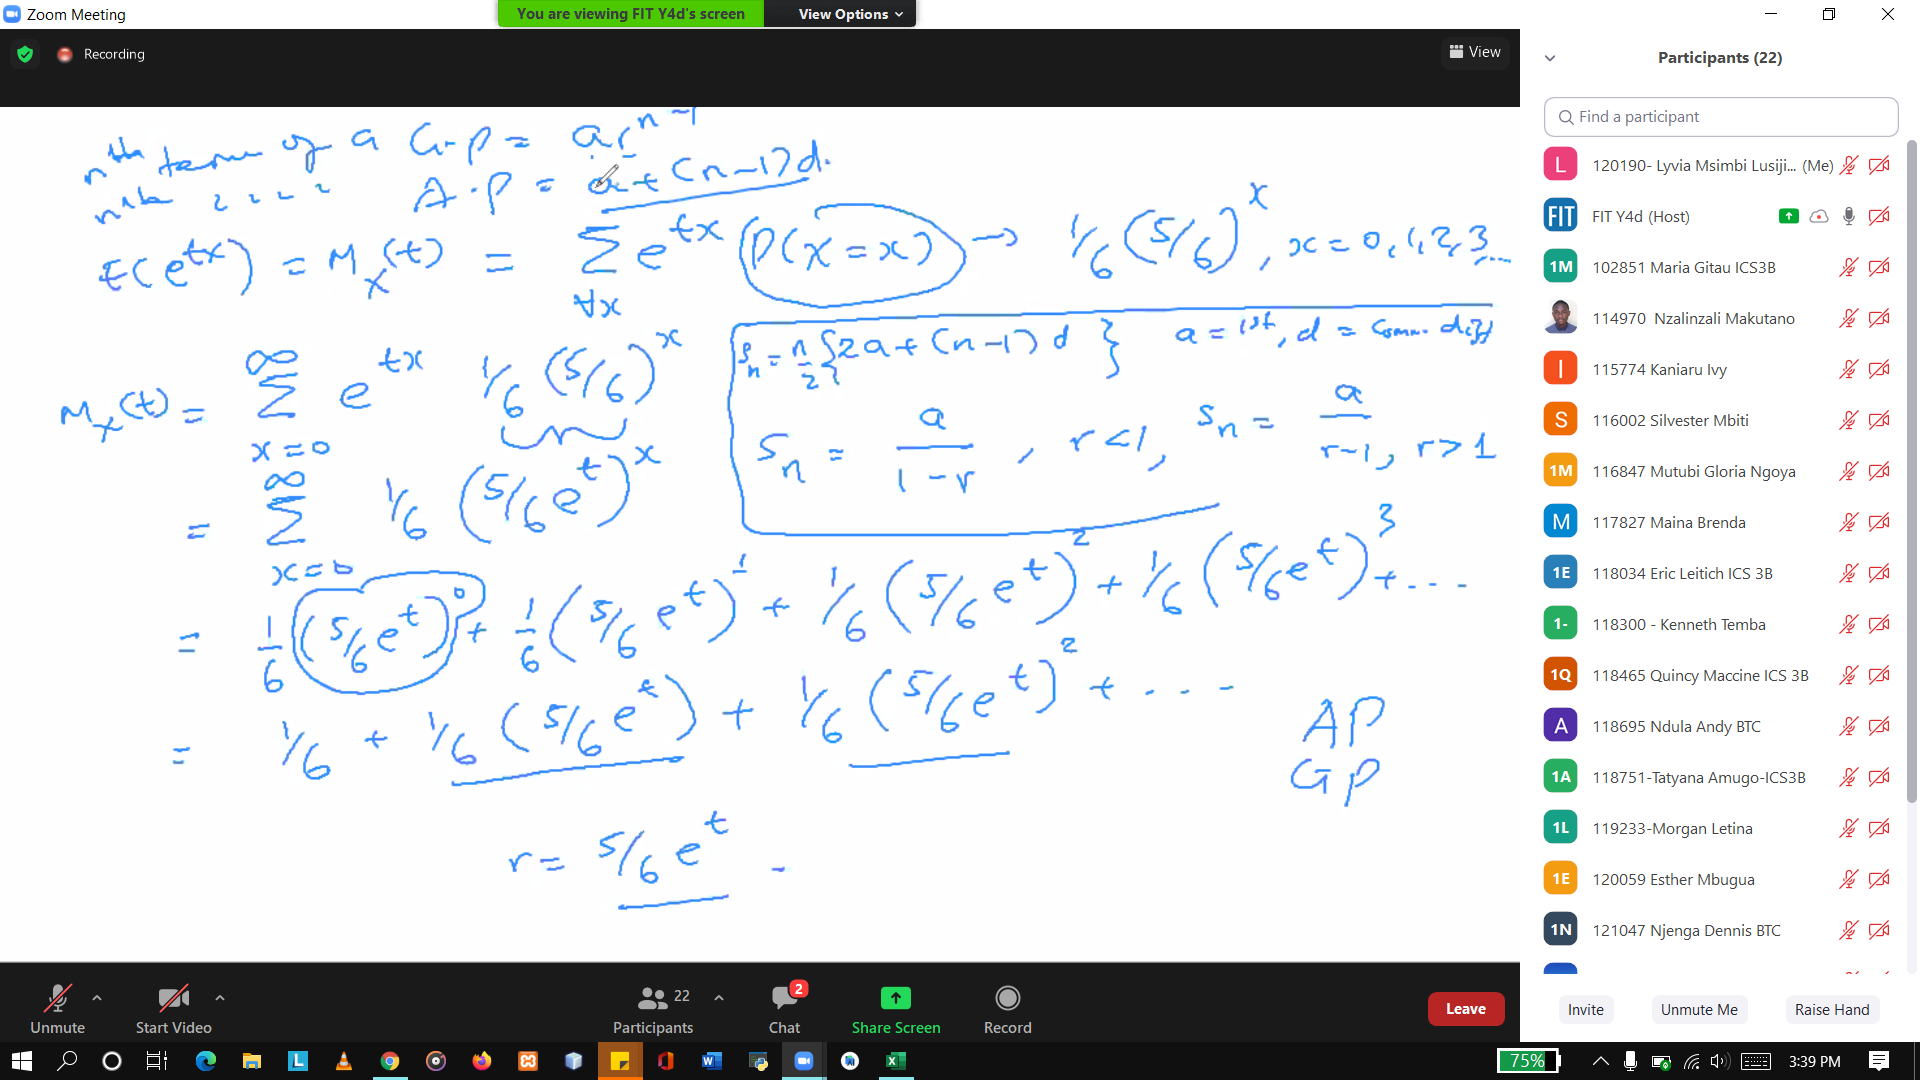 Zoom Meeting
You are viewing FIT Y4d's screen
View Options
Recording
View
nth term of a G.P = ar^n-1
nth " " " " A.P = a + (n-1)d.
E(e^tx) = M_x(t) = Σ e^tx P(X=x) → 1/6 (5/6)^x, x = 0,1,2,3,...
∀x
M_x(t) = ∞ Σ x=0 e^tx 1/6 (5/6)^x
S_n = n/2 {2a + (n-1)d} a = 1st, d = comm. diff
S_n = a/1-r, r<1, S_n = a/r-1, r>1
= ∞ Σ x=0 1/6 (5/6 e^t)^x
= 1/6 (5/6 e^t)^0 + 1/6 (5/6 e^t)^1 + 1/6 (5/6 e^t)^2 + 1/6 (5/6 e^t)^3 + ...
= 1/6 + 1/6 (5/6 e^t) + 1/6 (5/6 e^t)^2 + ...
AP
GP
r = 5/6 e^t -
Participants (22)
Find a participant
L 120190- Lyvia Msimbi Lusiji... (Me)
FIT FIT Y4d (Host)
1M 102851 Maria Gitau ICS3B
114970 Nzalinzali Makutano
I 115774 Kaniaru Ivy
S 116002 Silvester Mbiti
1M 116847 Mutubi Gloria Ngoya
M 117827 Maina Brenda
1E 118034 Eric Leitich ICS 3B
1- 118300 - Kenneth Temba
1Q 118465 Quincy Maccine ICS 3B
A 118695 Ndula Andy BTC
1A 118751-Tatyana Amugo-ICS3B
1L 119233-Morgan Letina
1E 120059 Esther Mbugua
1N 121047 Njenga Dennis BTC
Invite
Unmute Me
Raise Hand
Unmute
Start Video
22
Participants
2
Chat
Share Screen
Record
Leave
75%
3:39 PM